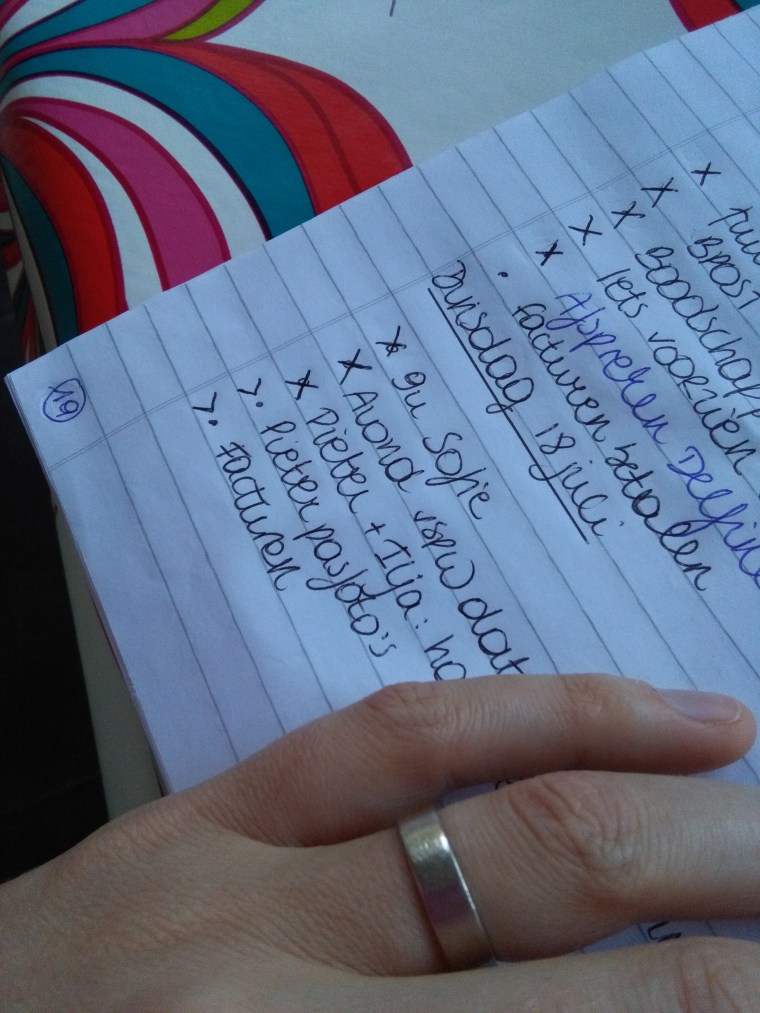 BROS
Boodschapp
Iets voorzien
Afspreken Delfine
• facturen betalen
Dinsdag 18 juli
x 9u Sofie
x Avond vspw dat
x Pieter + Ilja: ho
> • Pieter pasfoto's
> • Facturen
19